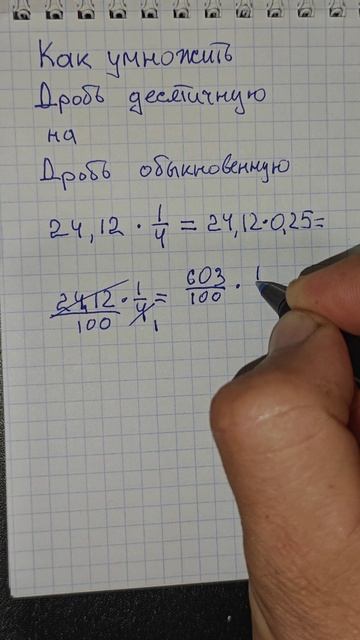 Как умножить
Дробь десятичную
на
Дробь обыкновенную
24,12 · 1/4 = 24,12·0,25=
24,12/100 · 1/4 1 = 603/100 · 1